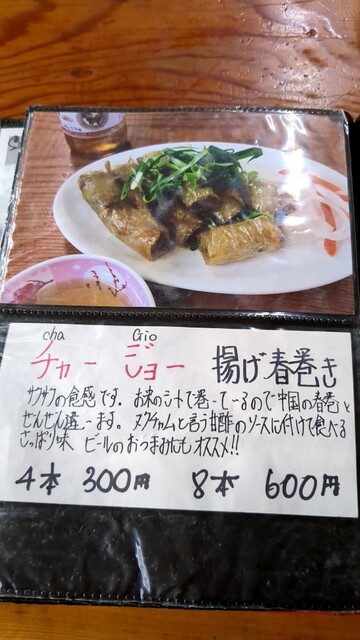 cha Gio
チャージョー 揚げ春巻き
サクサクの食感です。お米のシートで巻いているので中国の春巻と
ぜんぜん違います。ヌクチャムと言う甘酢のソースに付けて食べる
さっぱり味 ビールのおつまみにもオススメ!!
4本 300円 8本 600円